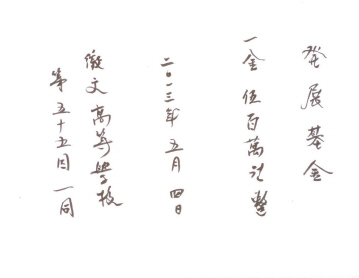 發展基金
一金 伍百萬원整
二〇一三年 五月 四日
徽文高等學校
第五十五回 一同